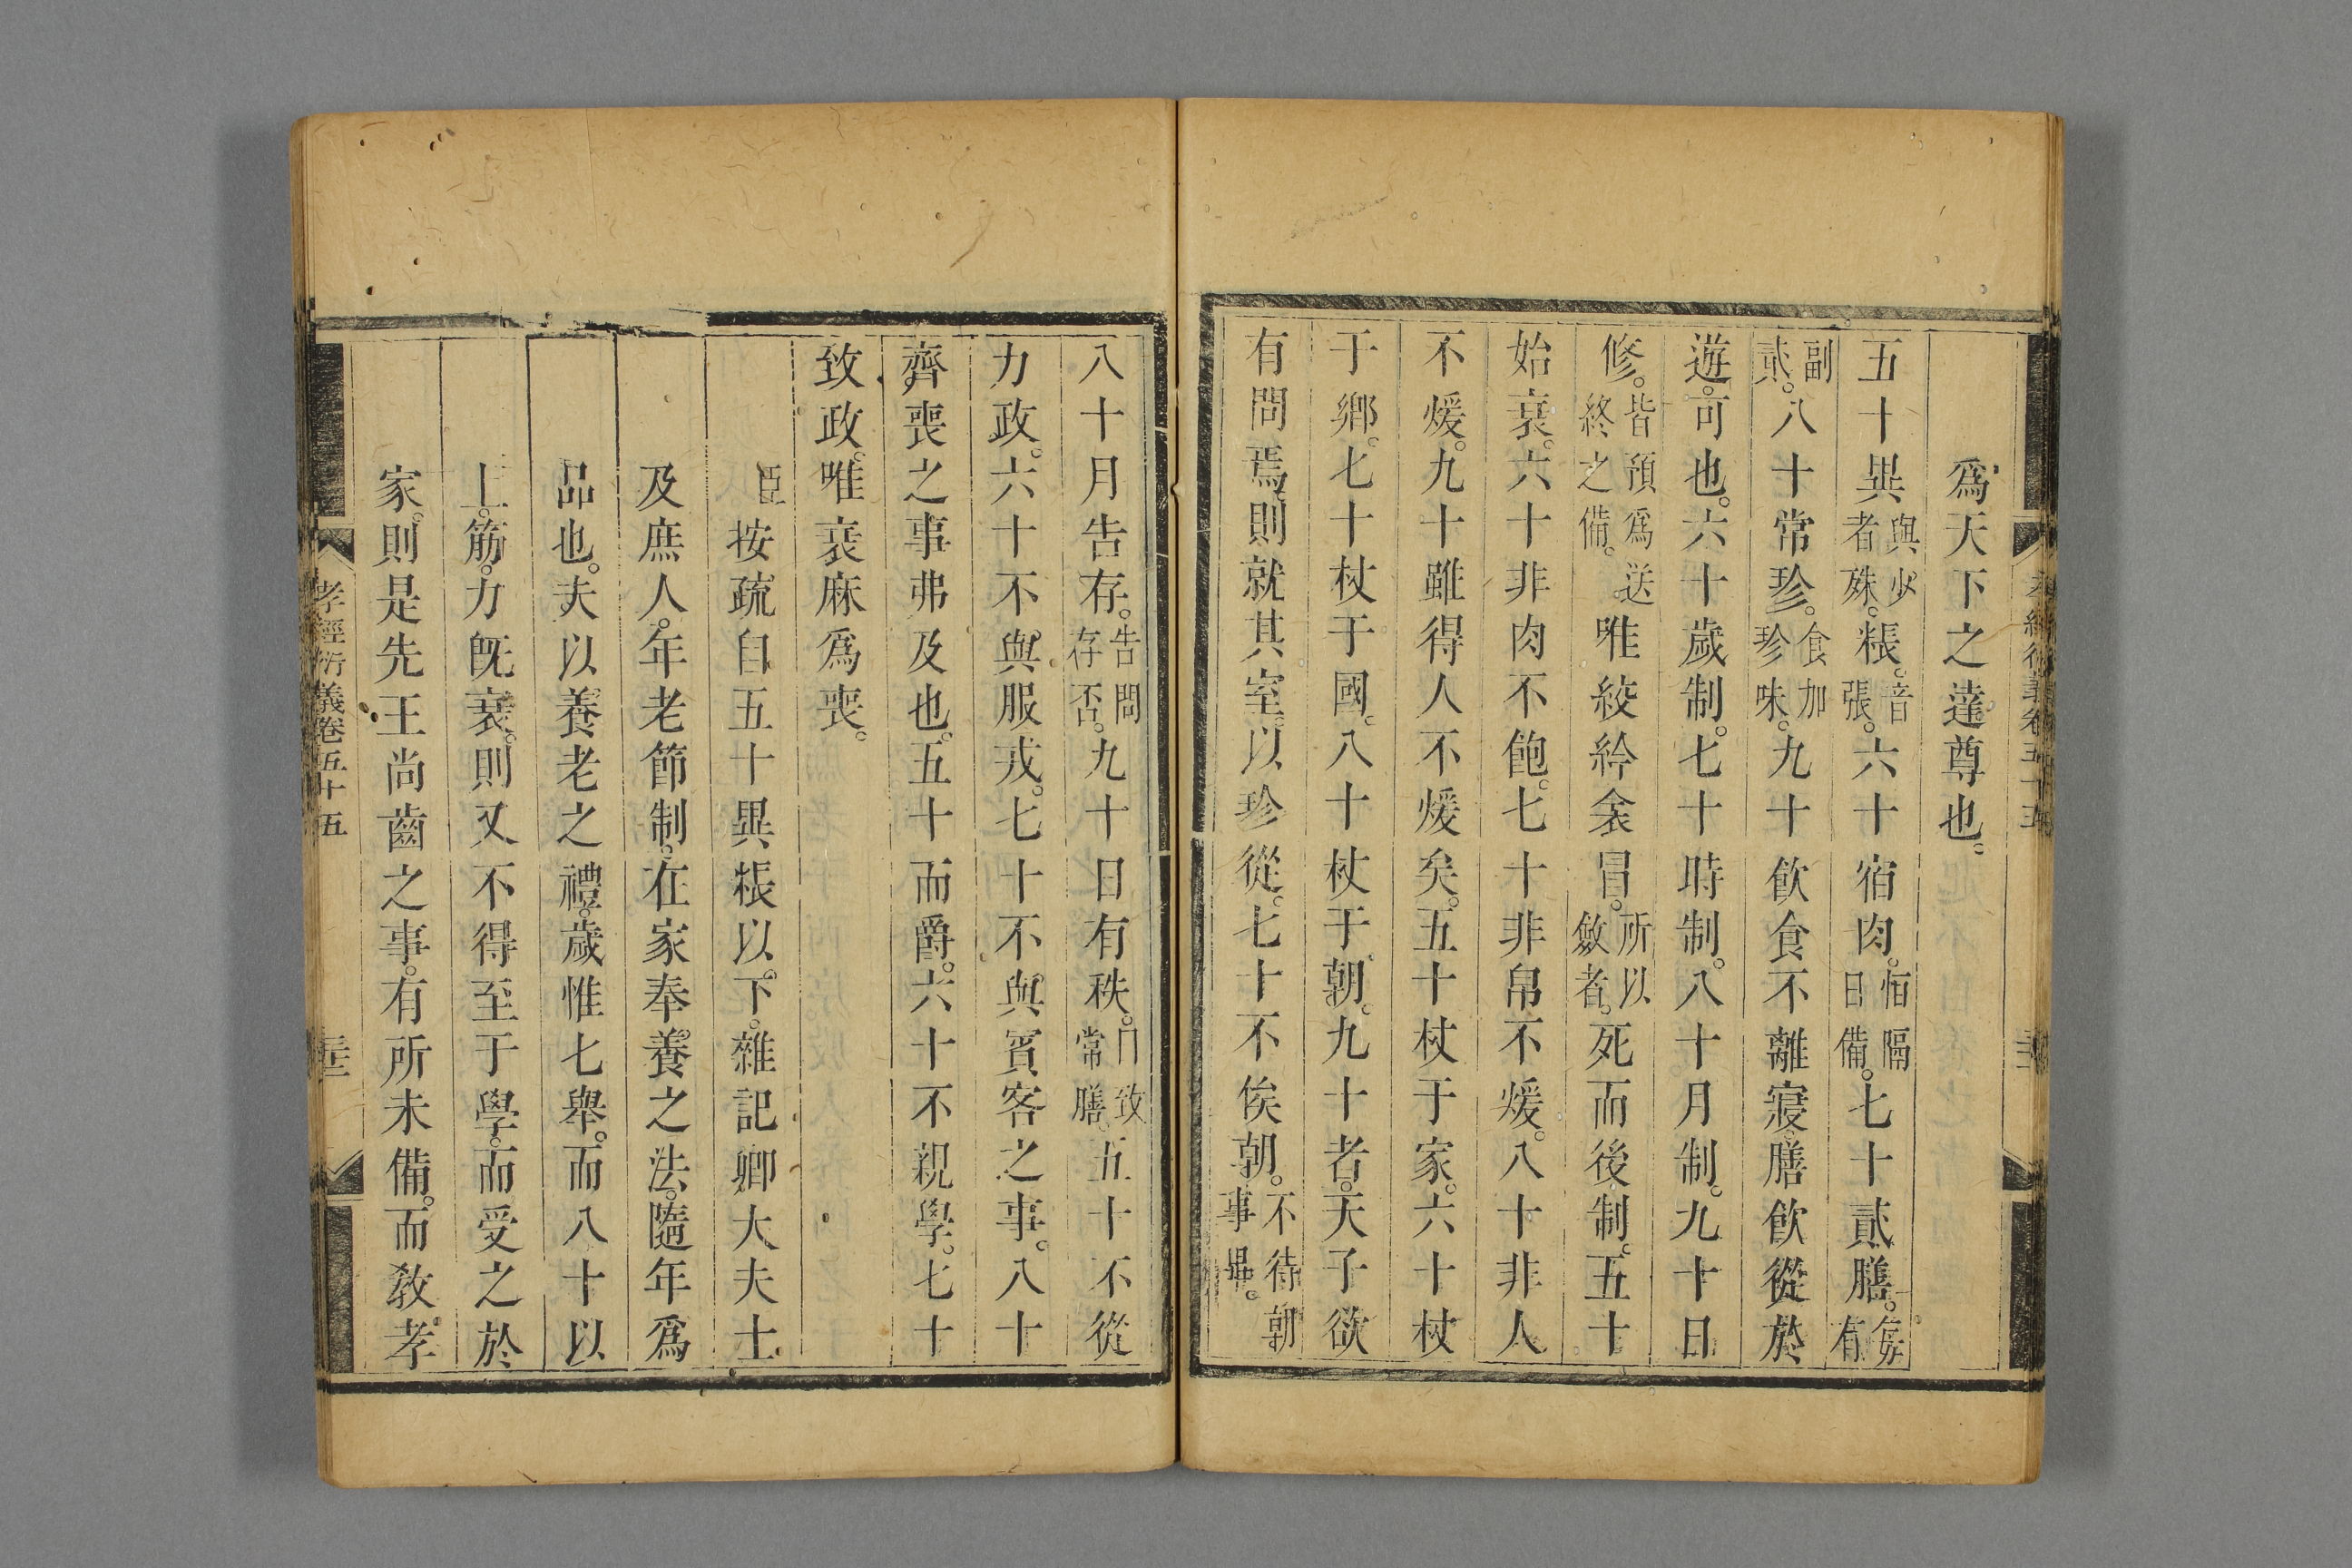 爲天下之達尊也。
五十異與少者殊。粻。音張。六十宿肉。恒隔日備。七十貳膳。每有
副貳。八十常珍。食加珍味。九十飲食不離寢。膳飲從於
遊。可也。六十歲制。七十時制。八十月制。九十日
修。皆預爲送終之備。唯絞紟衾冒。所以斂者。死而後制。五十
始衰。六十非肉不飽。七十非帛不煖。八十非人
不煖。九十雖得人不煖矣。五十杖于家。六十杖
于鄉。七十杖于國。八十杖于朝。九十者。天子欲
有問焉。則就其室。以珍從。七十不俟朝。不待朝事畢。
八十月告存。告問存否。九十日有秩。門致常膳。五十不從
力政。六十不與服戎。七十不與賓客之事。八十
齊喪之事弗及也。五十而爵。六十不親學。七十
致政。唯衰麻爲喪。
臣按疏自五十異粻以下。雜記卿大夫士
及庶人。年老節制。在家奉養之法。隨年爲
品也。夫以養老之禮。歲惟七舉。而八十以
上。筋力既衰。則又不得至于學。而受之於
家。則是先王尚齒之事。有所未備。而敎孝
孝經衍義卷五十五